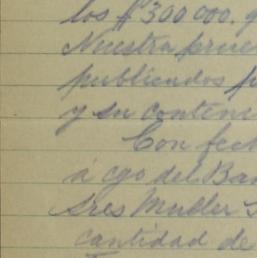 los $300000. q
Nuestra prue
publicados p
y su conteni
Con fech
á cgo del Ban
Sres Muller y
cantidad de